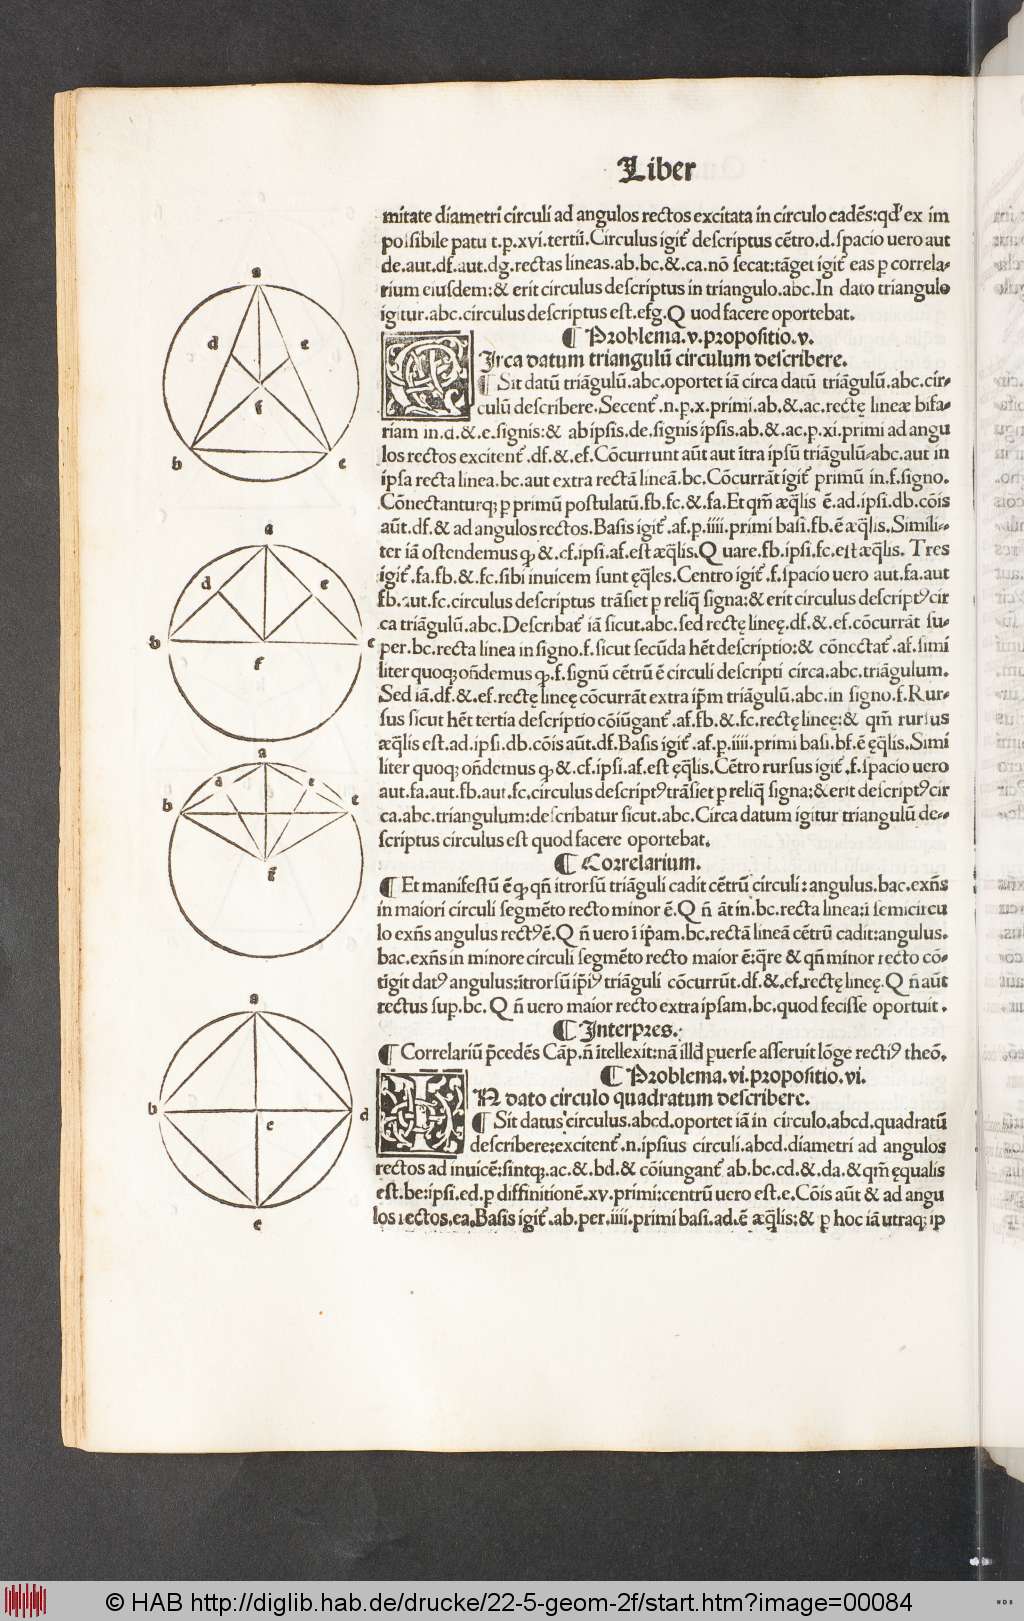 Liber
mitate diametri circuli ad angulos rectos excitata in circulo eadẽs:qđ ex im
possibile patu t.p̱.xvi.tertii.Circulus igit̃ descriptus cẽtro.d.spacio uero aut
de.aut.df.aut.dg.rectas lineas.ab.bc.&.ca.nō secat:tãget igit̃ eas p̱ correla⸗
rium eiusdem:& erit circulus descriptus in triangulo.abc.In dato triangulo
igitur.abc.circulus descriptus est.efg.Quod facere oportebat.
¶ Problema.v.propositio.v.
CIrca datum triangulũ circulum describere.
¶ Sit datũ triãgulũ.abc.oportet iã circa datũ triãgulũ.abc.cir⸗
culũ describere.Secent̃.n.p̱.x.primi.ab.&.ac.rectę lineæ bifa⸗
riam in.d.&.e.signis:& ab ipsis.de.signis ipsis.ab.&.ac.p̱.xi.primi ad angu
los rectos excitent̃.df.&.ef.Cōcurrunt aũt aut ĩtra ipsũ triãgulũ.abc.aut in
ipsa recta linea.bc.aut extra rectã lineã.bc.Cōcurrãt igit̃ primũ in.f.signo.
Cōnectanturqꝫ p̱ primũ postulatũ.fb.fc.&.fa.Et qm̃ æq̃lis ẽ.ad.ipsi.db.cōis
aũt.df.& ad angulos rectos.Basis igit̃.af.p̱.iiii.primi basi.fb.ẽ æq̃lis.Simili⸗
ter iã ostendemus ꝙ &.cf.ipsi.af.est æq̃lis.Quare.fb.ipsi.fc.est æq̃lis. Tres
igit̃.fa.fb.&.fc.sibi inuicem sunt ęq̃les.Centro igit̃.f.spacio uero aut.fa.aut
fb.aut.fc.circulus descriptus trãsiet p̱ reliq̃ signa:& erit circulus descriptꝰ cir
ca triãgulũ.abc.Describat̃ iã sicut.abc.sed rectę lineę.df.&.ef.cōcurrãt su⸗
per.bc.recta linea in signo.f.sicut secũda hẽt descriptio:& cōnectat̃.af.simi
liter quoqꝫ oñdemus ꝙ.f.signũ cẽtrũ ẽ circuli descripti circa.abc.triãgulum.
Sed iã.df.&.ef.rectę lineę cōcurrãt extra ip̃m triãgulũ.abc.in signo.f.Rur⸗
sus sicut hẽt tertia descriptio cōiũgant̃.af.fb.&.fc.rectę lineę:& qm̃ rursus
æq̃lis est.ad.ipsi.db.cōis aũt.df.Basis igit̃.af.p̱.iiii.primi basi.bf.ẽ ęq̃lis.Simi
liter quoqꝫ oñdemus ꝙ &.cf.ipsi.af.est ęq̃lis.Cẽtro rursus igit̃.f.spacio uero
aut.fa.aut.fb.aut.fc.circulus descriptꝰ trãsiet p̱ reliq̃ signa:& erit descriptꝰ cir
ca.abc.triangulum:describatur sicut.abc.Circa datum igitur triangulũ de⸗
scriptus circulus est quod facere oportebat.
¶ Correlarium.
¶ Et manifestũ ẽ ꝙ qñ itrorsũ triãguli cadit cẽtrũ circuli:angulus.bac.exñs
in maiori circuli segmẽto recto minor ẽ.Qñ ãt in.bc.recta linea:ĩ semicircu
lo exñs angulus rectꝰ ẽ.Qñ uero ĩ ip̃am.bc.rectã lineã cẽtrũ cadit:angulus.
bac.exñs in minore circuli segmẽto recto maior ẽ:q̃re & qñ minor recto cō⸗
tĩgit datꝰ angulus:ĩtrorsũ ip̃iꝰ triãguli cōcurrũt.df.&.ef.rectę lineę.Qñ aũt
rectus sup̱.bc.Qñ uero maior recto extra ipsam.bc.quod fecisse oportuit.
¶ Interpres.
¶ Correlariũ p̃cedẽs Cãp.ñ ĩtellexit:nã illđ p̱uerse asseruit lōge rectiꝰ theō.
¶ Problema.vi.propositio.vi.
IN dato circulo quadratum describere.
¶ Sit datus circulus.abcd.oportet iã in circulo.abcd.quadratũ
describere:excitent̃.n.ipsius circuli.abcd.diametri ad angulos
rectos ad inuicẽ:sintqꝫ.ac.&.bd.& cōiungant̃ ab.bc.cd.&.da.& qm̃ ęqualis
est.be:ipsi.ed.p̱ diffinitionẽ.xv.primi:centrũ uero est.e.Cōis aũt & ad angu
los rectos.ea.Basis igit̃.ab.per.iiii.primi basi.ad.ẽ æq̃lis:& p̱ hoc iã utraqꝫ ip
a
d e
f
b c
a
d e
b c
f
a
d e
b c
f
a
b d
e
c
© HAB http://diglib.hab.de/drucke/22-5-geom-2f/start.htm?image=00084